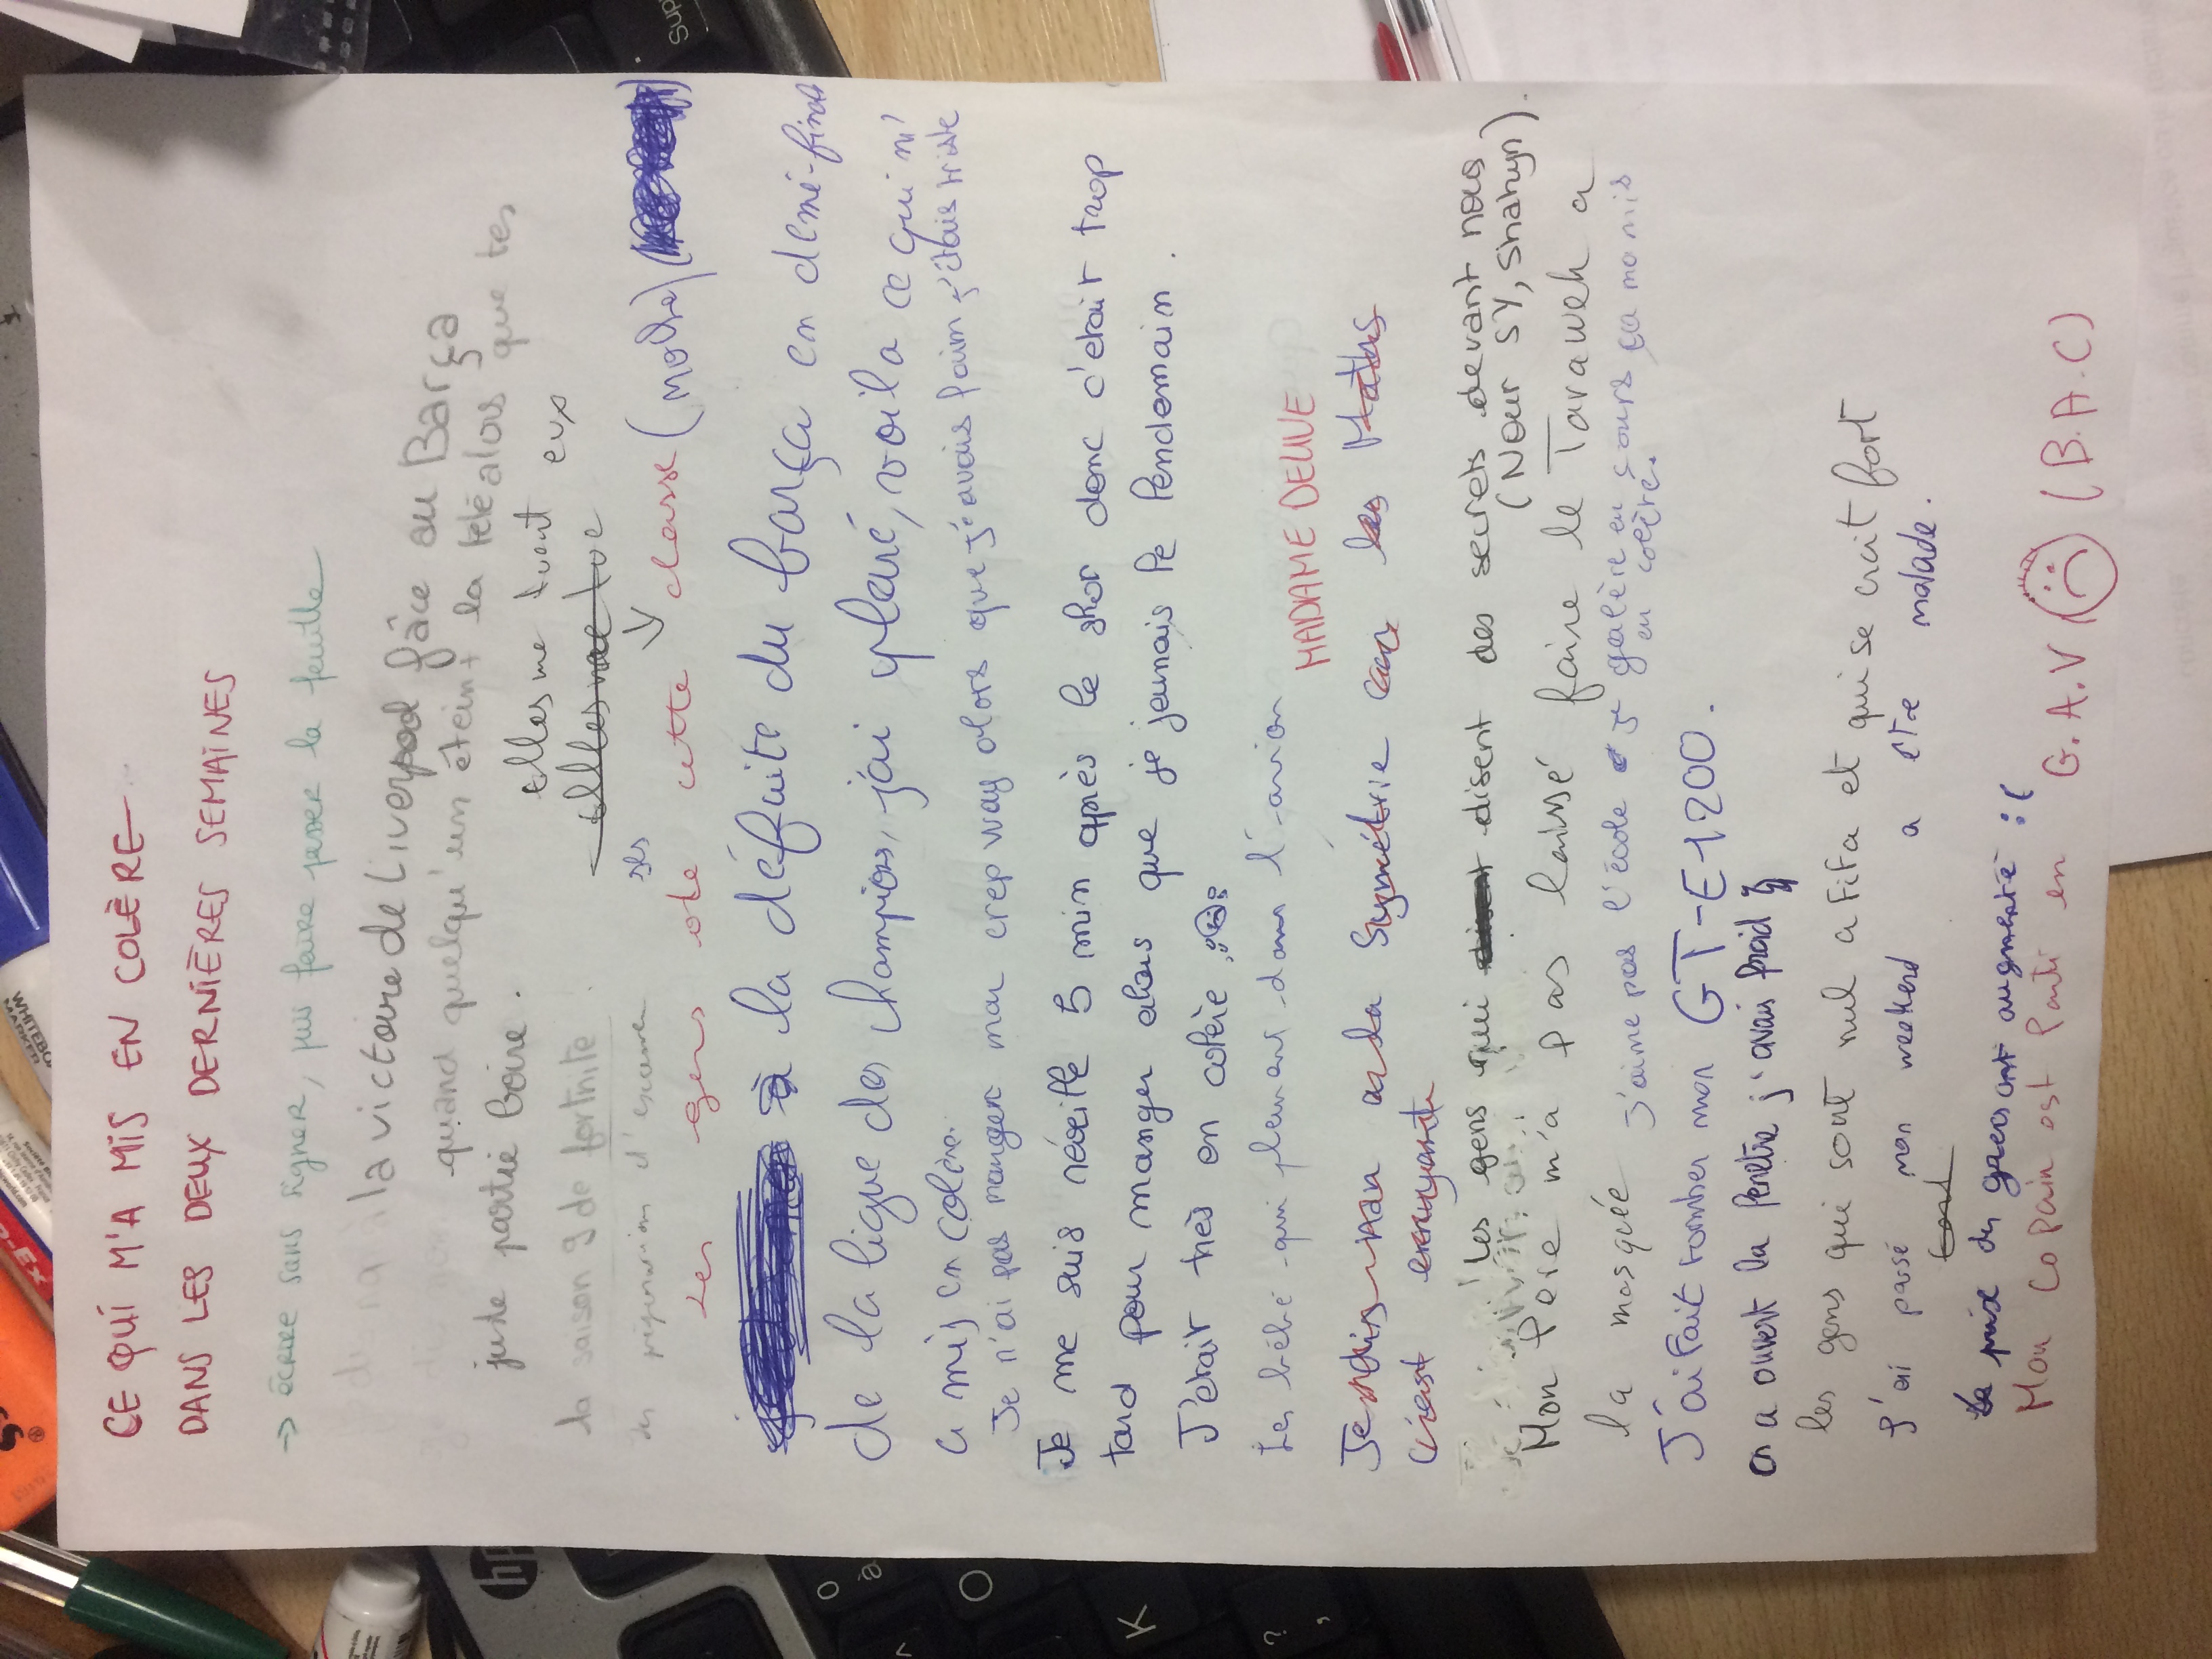 CE QUI M'A MIS EN COLÈRE
DANS LES DEUX DERNIÈRES SEMAINES
→ écrire sans signer, puis faire passer la feuille
la victoire de Liverpool fâce au Barça
quand quelqu'un étein+ la télé alors que tes
juste partie boire.
elles me tuent eux
elles me tue
la saison 9 de fortnite
des d'examen
Les gens de cette classe (moche)
à la défaite du barça en demi-final
de la ligue des champions, j'ai pleuré, voila ce qui m'
a mis en colère.
Je n'ai pas manger mon crep way alors que j'avais faim j'étais triste
Je me suis réveillé 5 min après le shor donc c'etait trop
tard pour manger alors que je jeunais le lendemain.
J'etait très en colèie
Les bébé qui pleurent dans l'avion
MADAME DELUVE
Symétrie car les Maths
c'est ennuyante
les gens qui disent des secrets devant nous
(Nour sy, shahyn).
Mon père m'a pas laissé faire le Taraweh a
la mosquée
j'aime pas l'école je galère en cours ça ma mis
en colère.
J'ai Fait tomber mon GT-E1200.
on a ouvert la fenetre j'avais froid
les gens qui sont nul a Fifa et qui se croit fort
J'ai passé mon weekend a etre malade.
Le prix des gazes ont augmenté :(
Mon copain est Parti en G.A.V (B.A.C)
WHITEBOARD MARKER
hp